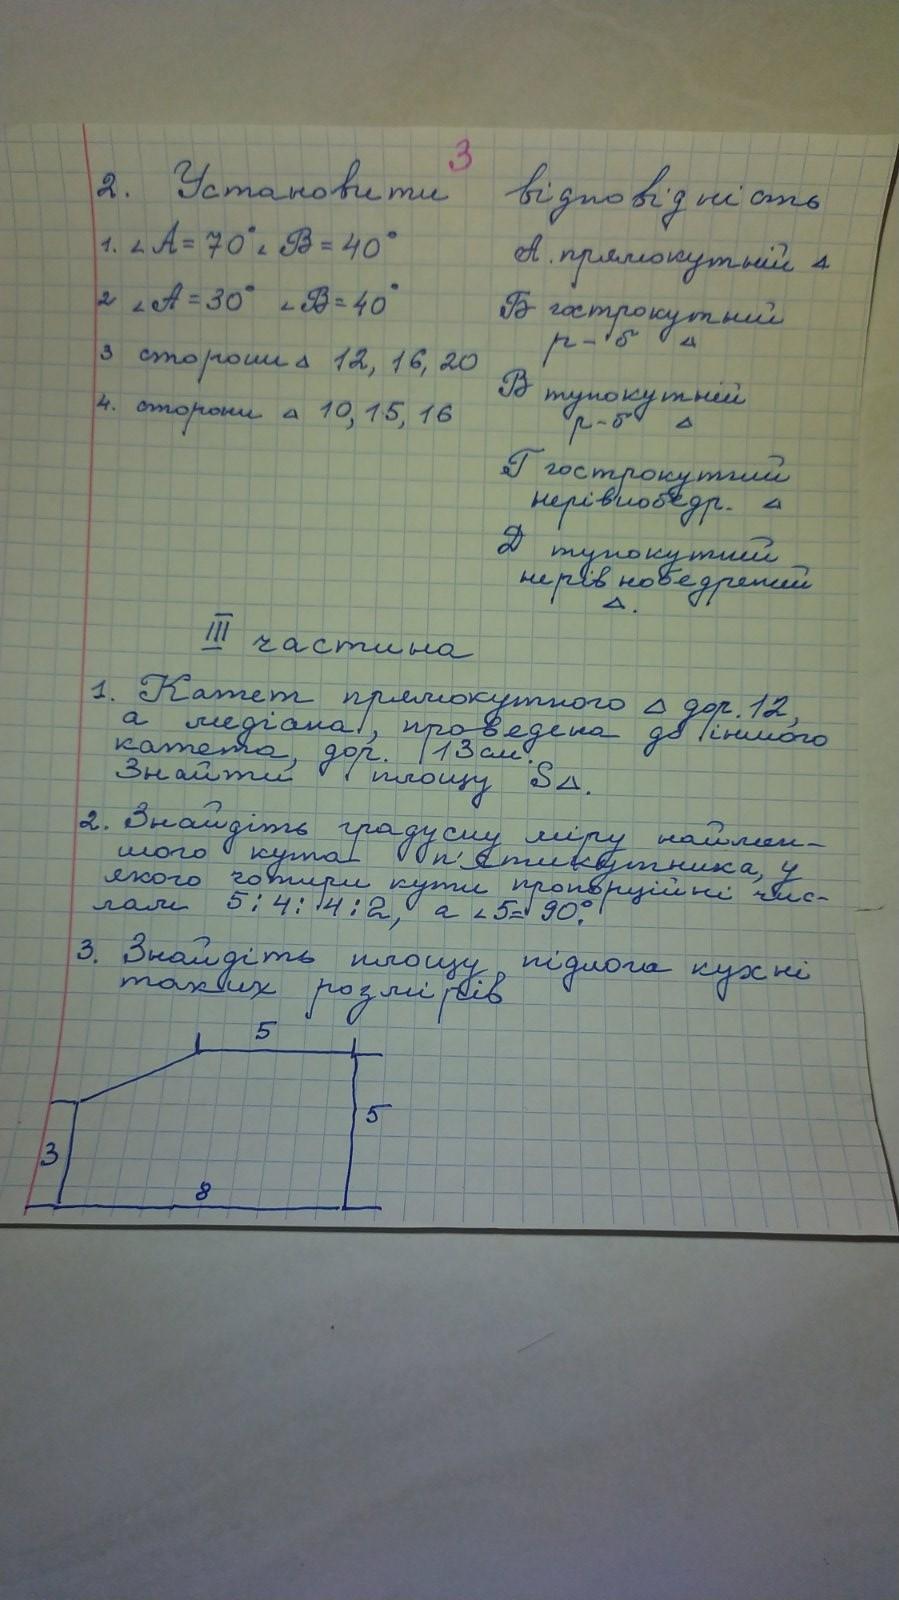 3
2. Установити відповідність
1. ∠A = 70° ∠B = 40°
А. прямокутній △
2 ∠A = 30° ∠B = 40°
Б гострокутний
р-б △
3 сторони △ 12, 16, 20
В тупокутній
р-б △
4. сторони △ 10, 15, 16
Г гострокутний
нерівнобедр. △
Д тупокутний
нерівнобедрений
△.
III частина
1. Катет прямокутного △ дор. 12,
а медіана, проведена до іншого
катета, дор. 13 см.
Знайти площу S△.
2. Знайдіть градусну міру наймен-
шого кута п'ятикутника, у
якого чотири кути пропорційні чис-
лам 5:4:4:2, а ∠5= 90°.
3. Знайдіть площу підлоги кухні
таких розмірів
5
5
3
8